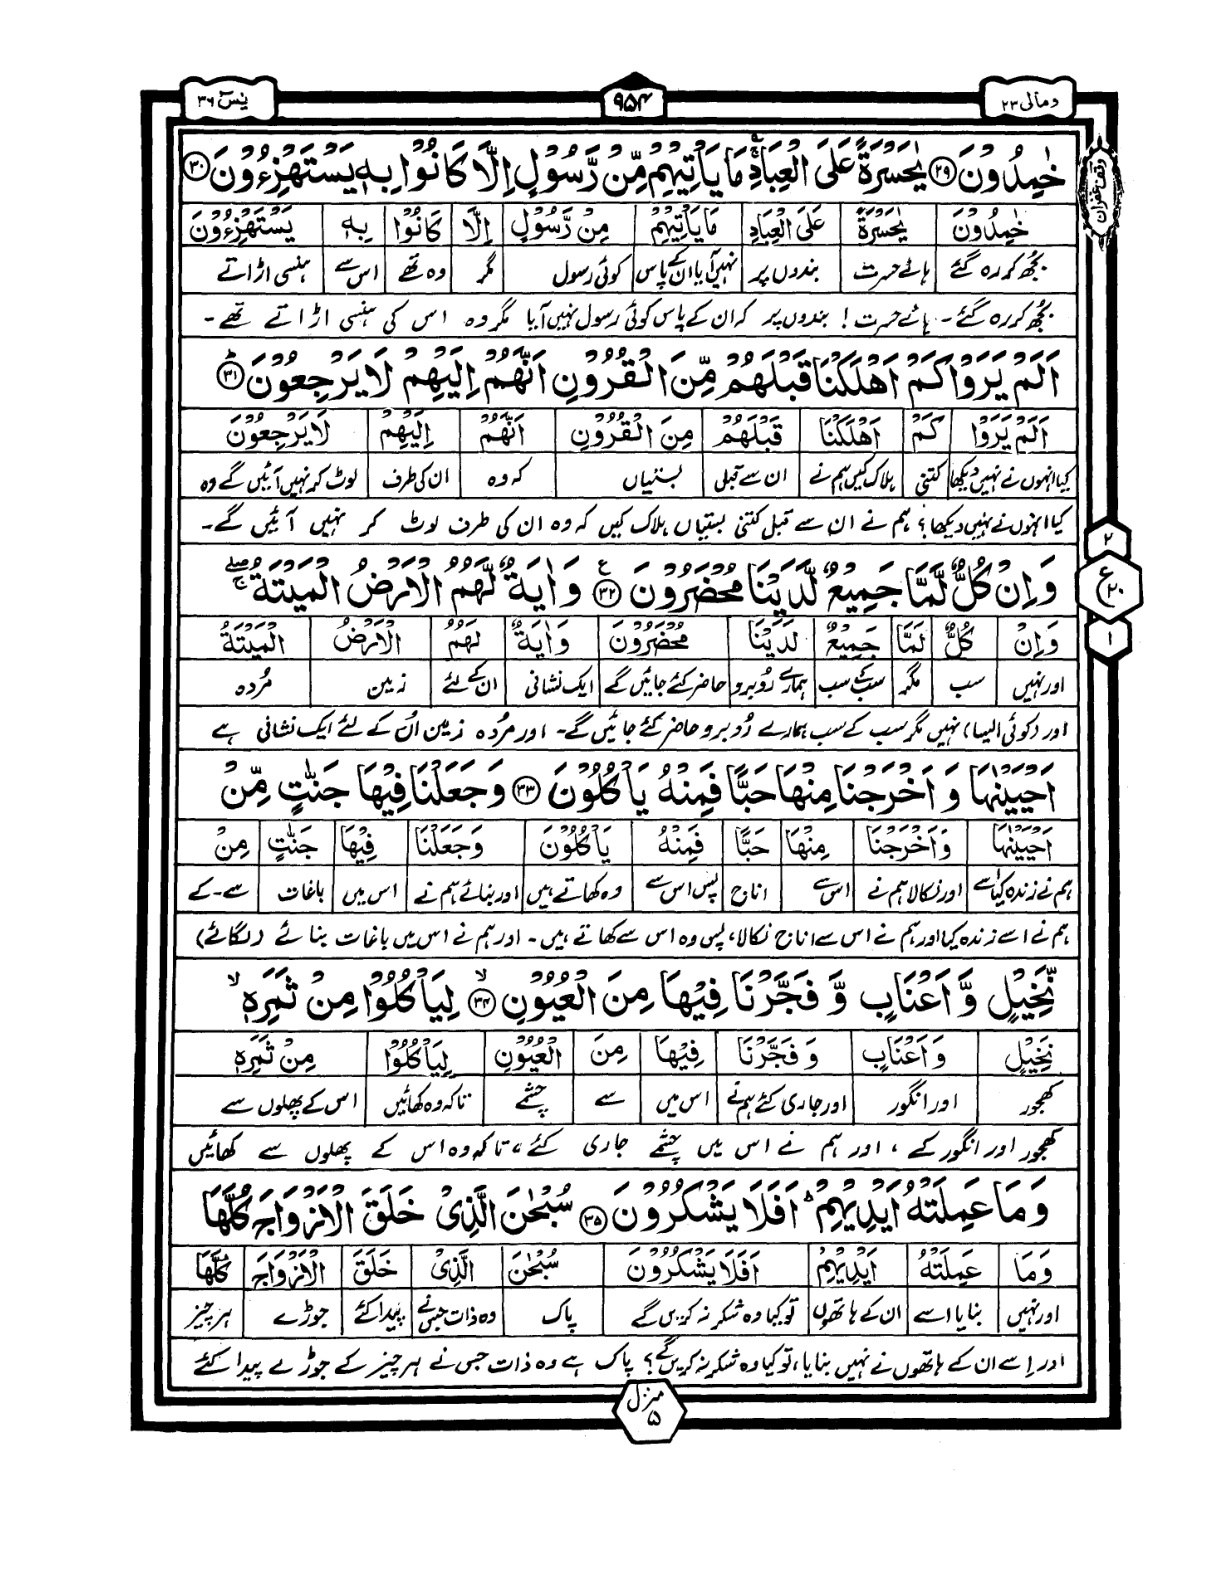 یٰسٓ ۳۶
۹۵۴
ومالی ۲۳
وقف غفران
خٰمِدُوْنَ ﴿۲۹﴾ یٰحَسْرَةً عَلَی الْعِبَادِ ۚ مَا یَاْتِیْهِمْ مِّنْ رَّسُوْلٍ اِلَّا كَانُوْا بِهٖ یَسْتَهْزِءُوْنَ ﴿۳۰﴾
خٰمِدُوْنَ یٰحَسْرَةً عَلَی الْعِبَادِ مَا یَاْتِیْهِمْ مِنْ رَّسُوْلٍ اِلَّا كَانُوْا بِهٖ یَسْتَهْزِءُوْنَ
بجھ کر رہ گئے ہائے حسرت بندوں پر نہیں آیا ان کے پاس کوئی رسول مگر وہ تھے اس سے ہنسی اڑاتے
بجھ کر رہ گئے۔ ہائے حسرت! بندوں پر کہ ان کے پاس کوئی رسول نہیں آیا مگر وہ اس کی ہنسی اڑاتے تھے۔
اَلَمْ یَرَوْا كَمْ اَهْلَكْنَا قَبْلَهُمْ مِّنَ الْقُرُوْنِ اَنَّهُمْ اِلَیْهِمْ لَا یَرْجِعُوْنَ ﴿۳۱﴾ؕ
اَلَمْ یَرَوْا كَمْ اَهْلَكْنَا قَبْلَهُمْ مِنَ الْقُرُوْنِ اَنَّهُمْ اِلَیْهِمْ لَا یَرْجِعُوْنَ
کیا انہوں نے نہیں دیکھا کتنی ہلاک کیں ہم نے ان سے قبل بستیاں کہ وہ ان کی طرف لوٹ کر نہیں آئیں گے وہ
کیا انہوں نے نہیں دیکھا؟ ہم نے ان سے قبل کتنی بستیاں ہلاک کیں کہ وہ ان کی طرف لوٹ کر نہیں آئیں گے۔
۲
ع ۲۰
۱
وَاِنْ كُلٌّ لَّمَّا جَمِیْعٌ لَّدَیْنَا مُحْضَرُوْنَ ﴿۳۲﴾ع وَاٰیَةٌ لَّهُمُ الْاَرْضُ الْمَیْتَةُ ۖۚ
وَاِنْ كُلٌّ لَمَّا جَمِیْعٌ لَدَیْنَا مُحْضَرُوْنَ وَاٰیَةٌ لَهُمُ الْاَرْضُ الْمَیْتَةُ
اور نہیں سب مگر سب کے سب ہمارے رُوبرو حاضر کئے جائیں گے ایک نشانی ان کے لئے زمین مُردہ
اور (کوئی ایسا) نہیں مگر سب کے سب ہمارے رُوبرو حاضر کئے جائیں گے۔ اور مُردہ زمین اُن کے لئے ایک نشانی ہے
اَحْیَیْنٰهَا وَاَخْرَجْنَا مِنْهَا حَبًّا فَمِنْهُ یَاْكُلُوْنَ ﴿۳۳﴾ وَجَعَلْنَا فِیْهَا جَنّٰتٍ مِّنْ
اَحْیَیْنٰهَا وَاَخْرَجْنَا مِنْهَا حَبًّا فَمِنْهُ یَاْكُلُوْنَ وَجَعَلْنَا فِیْهَا جَنّٰتٍ مِنْ
ہم نے زندہ کیا اسے اور نکالا ہم نے اس سے اناج پس اس سے وہ کھاتے ہیں اور بنائے ہم نے اس میں باغات سے۔کے
ہم نے اسے زندہ کیا اور ہم نے اس سے اناج نکالا، پس وہ اس سے کھاتے ہیں۔ اور ہم نے اس میں باغات بنائے (لگائے)
نَّخِیْلٍ وَّاَعْنَابٍ وَّفَجَّرْنَا فِیْهَا مِنَ الْعُیُوْنِ ﴿۳۴﴾ۙ لِیَاْكُلُوْا مِنْ ثَمَرِهٖ ۙ
نَخِیْلٍ وَاَعْنَابٍ وَفَجَّرْنَا فِیْهَا مِنَ الْعُیُوْنِ لِیَاْكُلُوْا مِنْ ثَمَرِهٖ
کھجور اور انگور اور جاری کئے ہم نے اس میں سے چشمے تاکہ وہ کھائیں اس کے پھلوں سے
کھجور اور انگور کے، اور ہم نے اس میں چشمے جاری کئے، تاکہ وہ اس کے پھلوں سے کھائیں
وَمَا عَمِلَتْهُ اَیْدِیْهِمْ ؕ اَفَلَا یَشْكُرُوْنَ ﴿۳۵﴾ سُبْحٰنَ الَّذِیْ خَلَقَ الْاَزْوَاجَ كُلَّهَا
وَمَا عَمِلَتْهُ اَیْدِیْهِمْ اَفَلَا یَشْكُرُوْنَ سُبْحٰنَ الَّذِیْ خَلَقَ الْاَزْوَاجَ كُلَّهَا
اور نہیں بنایا اسے ان کے ہاتھوں تو کیا وہ شکر نہ کریں گے پاک وہ ذات جس نے پیدا کئے جوڑے ہر چیز
اور اِسے ان کے ہاتھوں نے نہیں بنایا، تو کیا وہ شکر نہ کریں گے؟ پاک ہے وہ ذات جس نے ہر چیز کے جوڑے پیدا کئے
منزل ۵